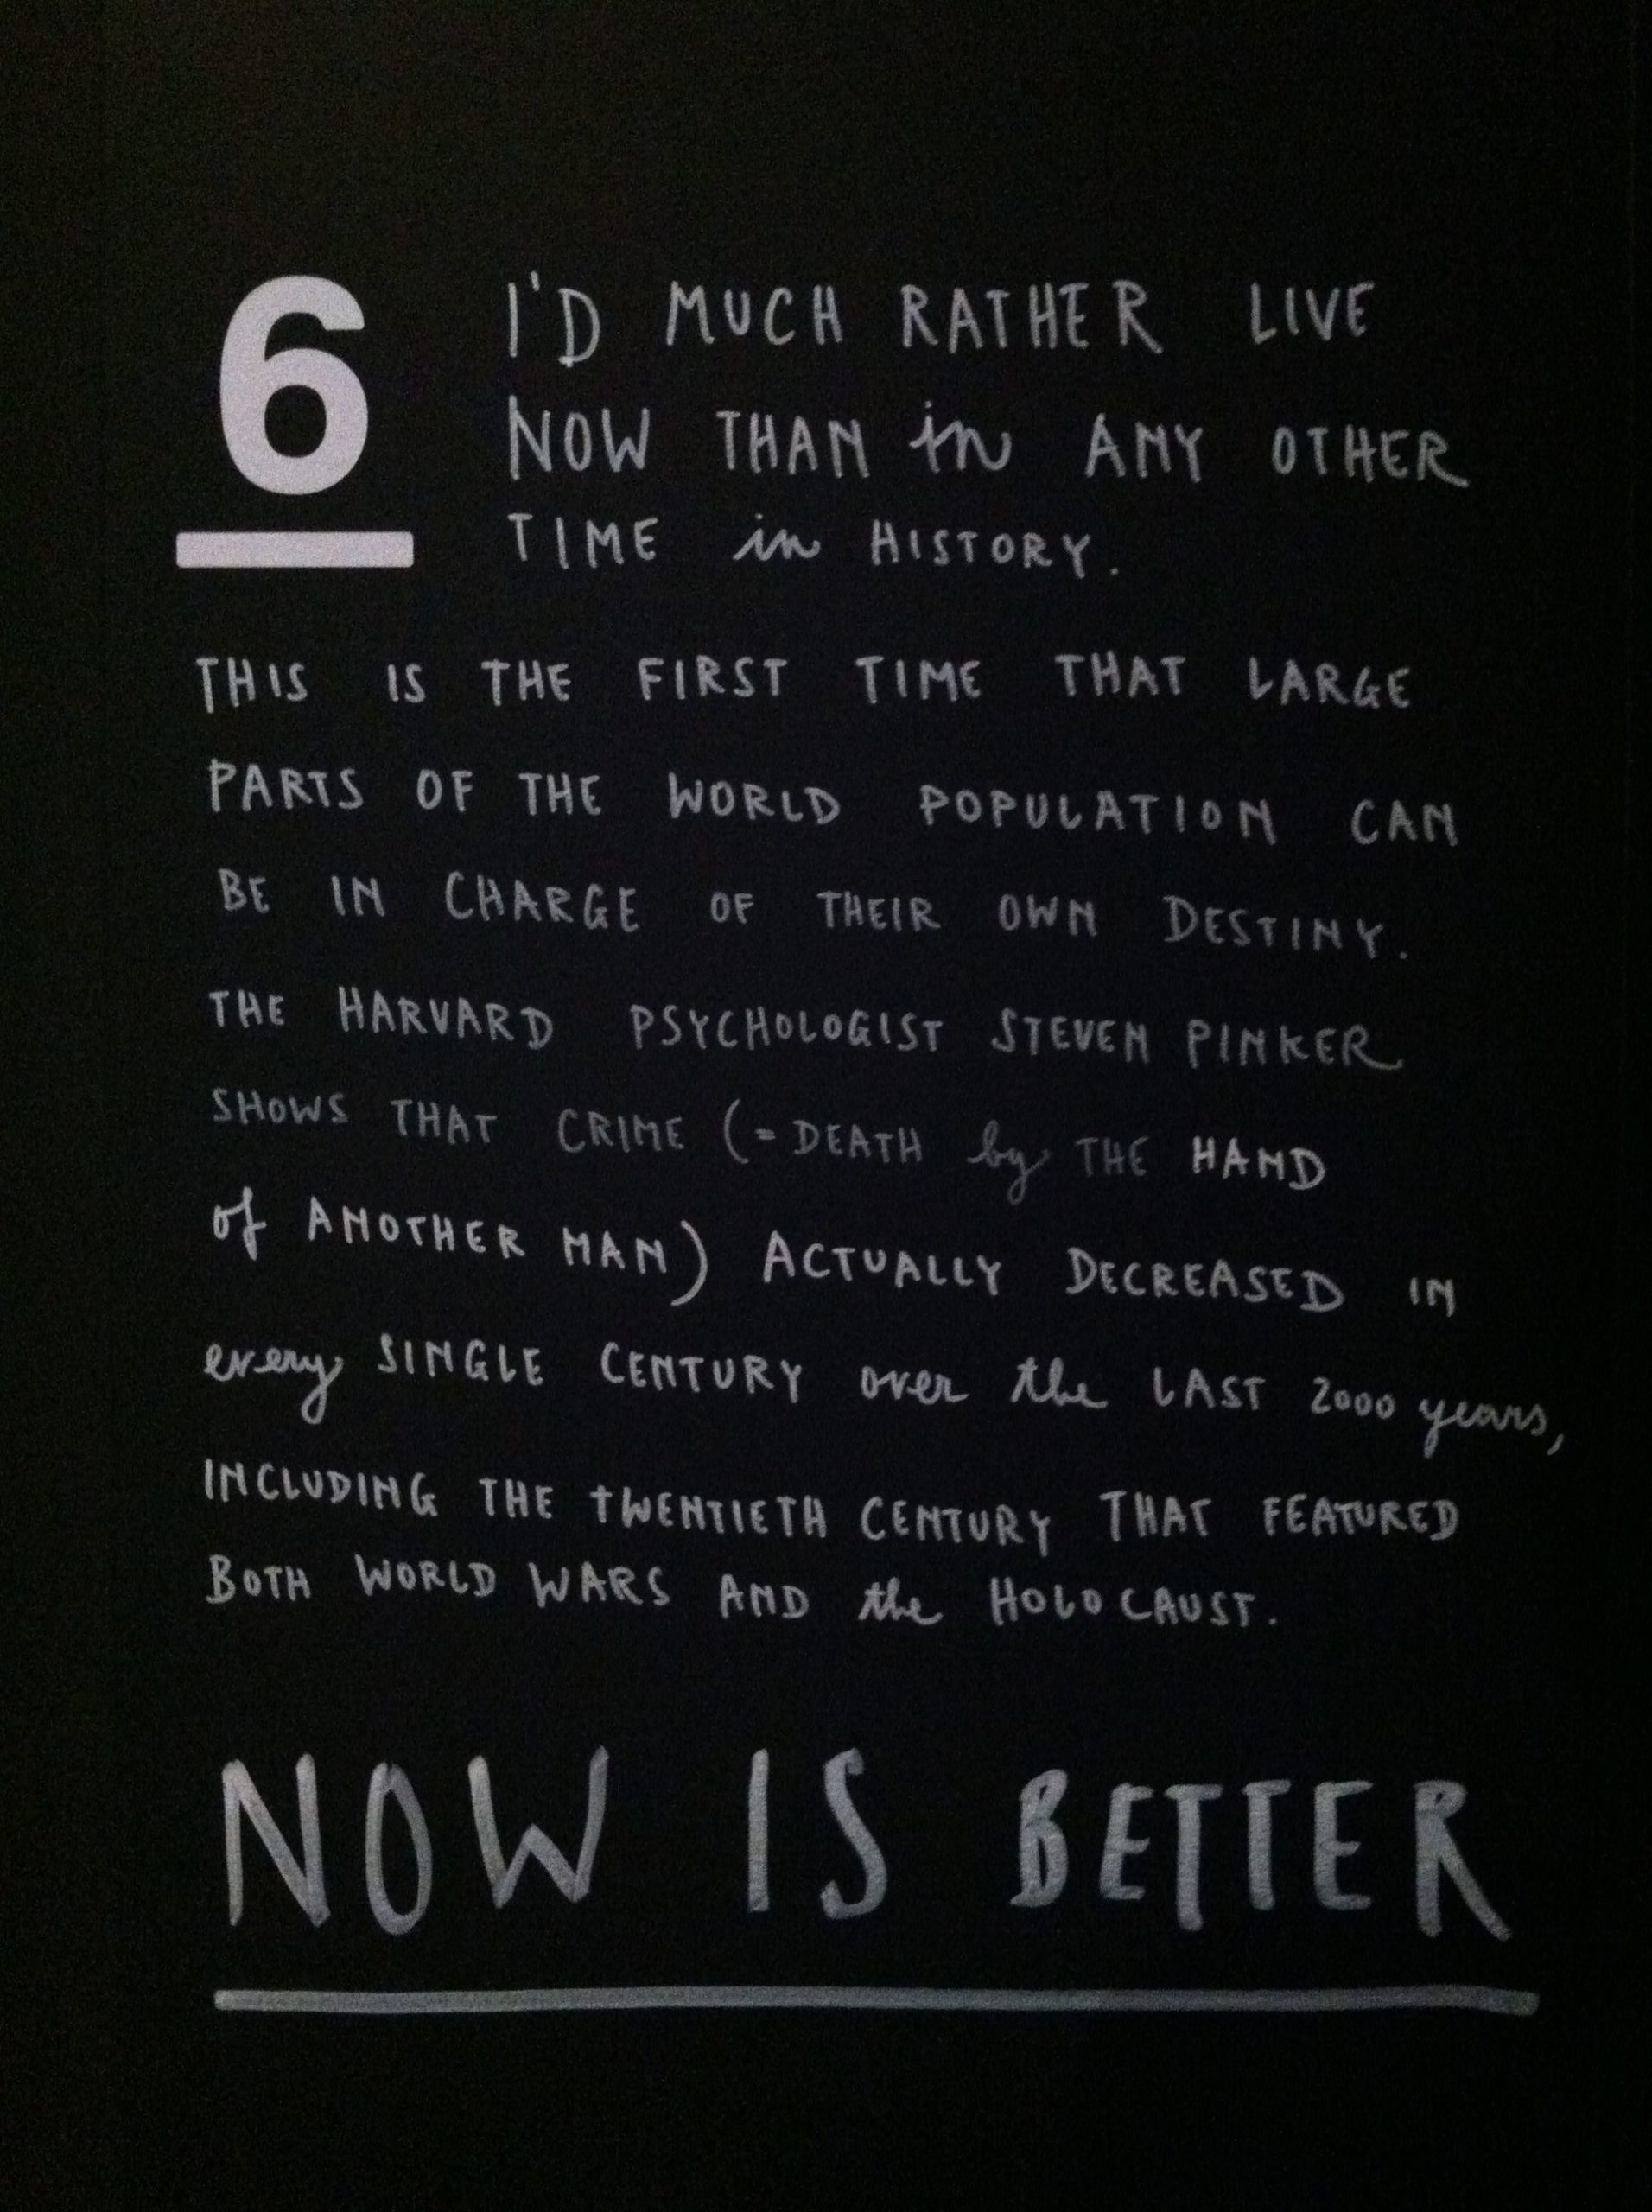 6
I'D MUCH RATHER LIVE
NOW THAN in ANY OTHER
TIME in HISTORY.
THIS IS THE FIRST TIME THAT LARGE
PARTS OF THE WORLD POPULATION CAN
BE IN CHARGE OF THEIR OWN DESTINY.
THE HARVARD PSYCHOLOGIST STEVEN PINKER
SHOWS THAT CRIME (= DEATH by THE HAND
of ANOTHER MAN) ACTUALLY DECREASED IN
every SINGLE CENTURY over the LAST 2000 years,
INCLUDING THE TWENTIETH CENTURY THAT FEATURED
BOTH WORLD WARS AND the HOLOCAUST.
NOW IS BETTER